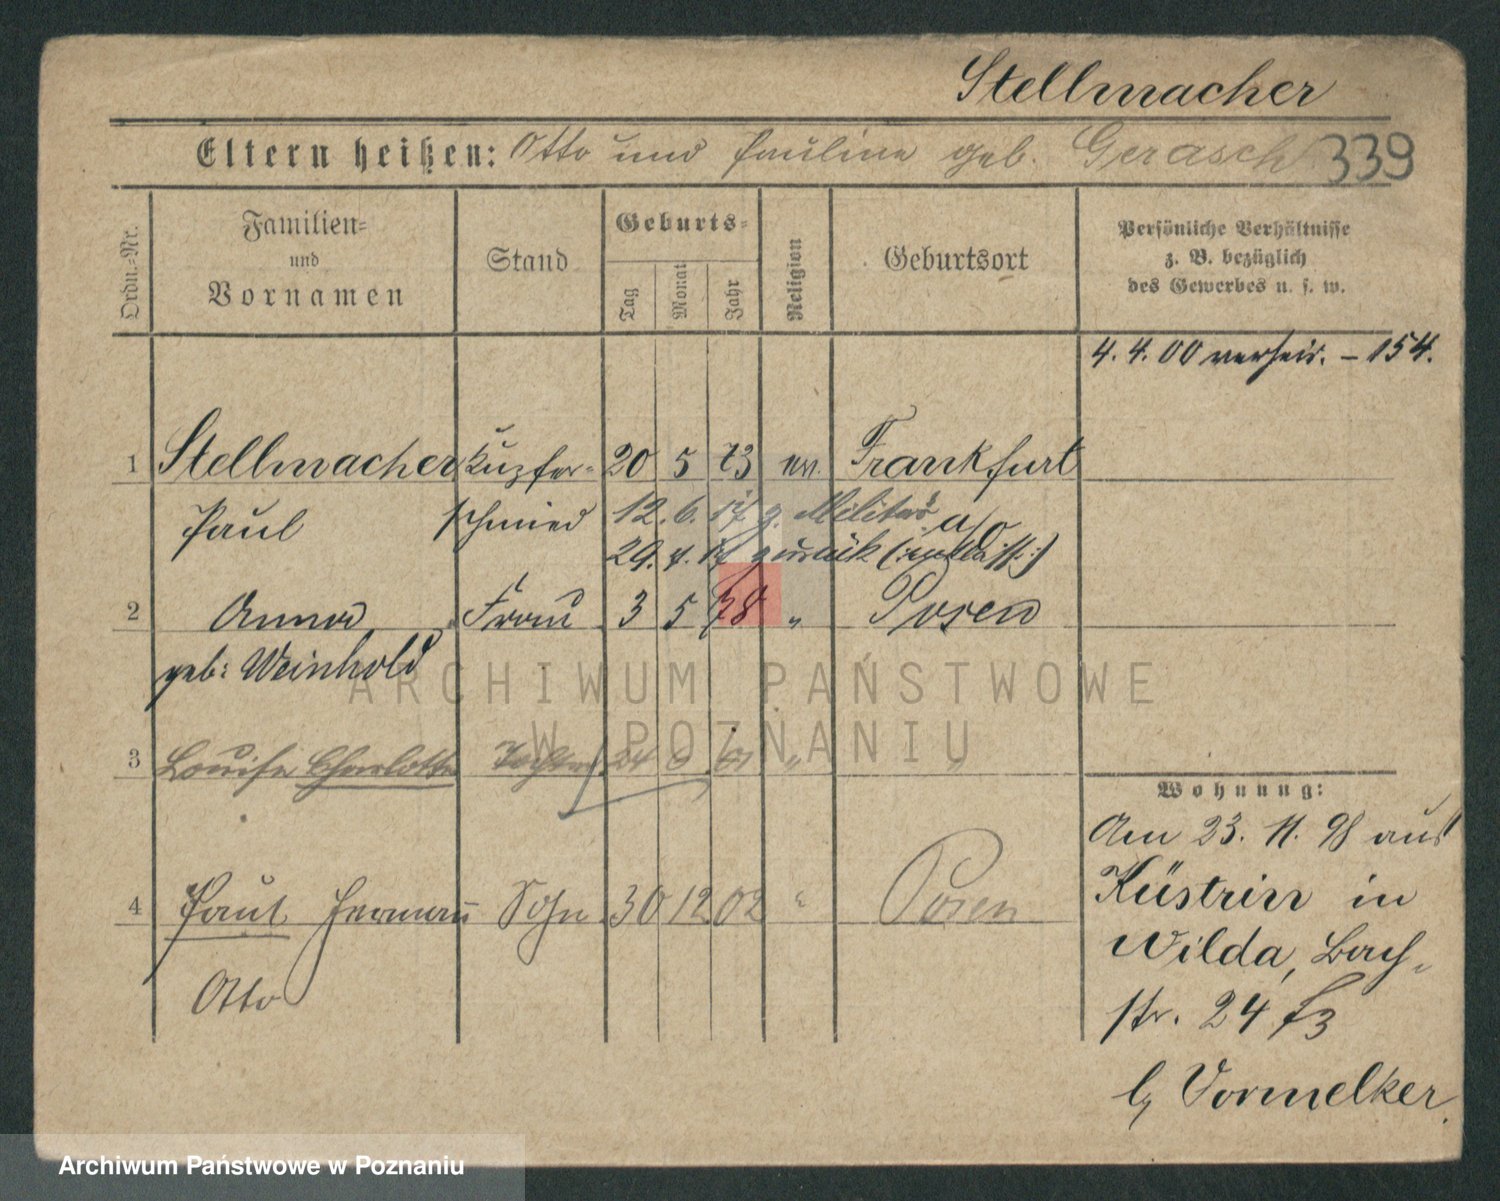 Stellmacher
Eltern heißen: Otto und Pauline geb. Gerasch 339
Ordn.-Nr.
Familien-
und
Vornamen
Stand
Geburts-
Tag
Monat
Jahr
Religion
Geburtsort
Persönliche Verhältnisse
z. B. bezüglich
des Gewerbes u. s. w.
4. 4. 00 verheir. – 154.
1 Stellmacher Kupfer- 20 5 73 ev. Frankfurt
Paul schmied 12. 6. 17 z. Militär a/O
29. 7. 17 zurück
2 Anna Frau 3 5 78 " Posen
geb: Weinhold
3 Louise Charlotte Tochter 24 6 01 " "
4 Paul Herman Sohn 30 12 02 " Posen
Otto
Wohnung:
Am 23. 11. 98 aus
Küstrin in
Wilda, Bach-
str. 24
b/ Vormelker.
ARCHIWUM PAŃSTWOWE
W POZNANIU
Archiwum Państwowe w Poznaniu